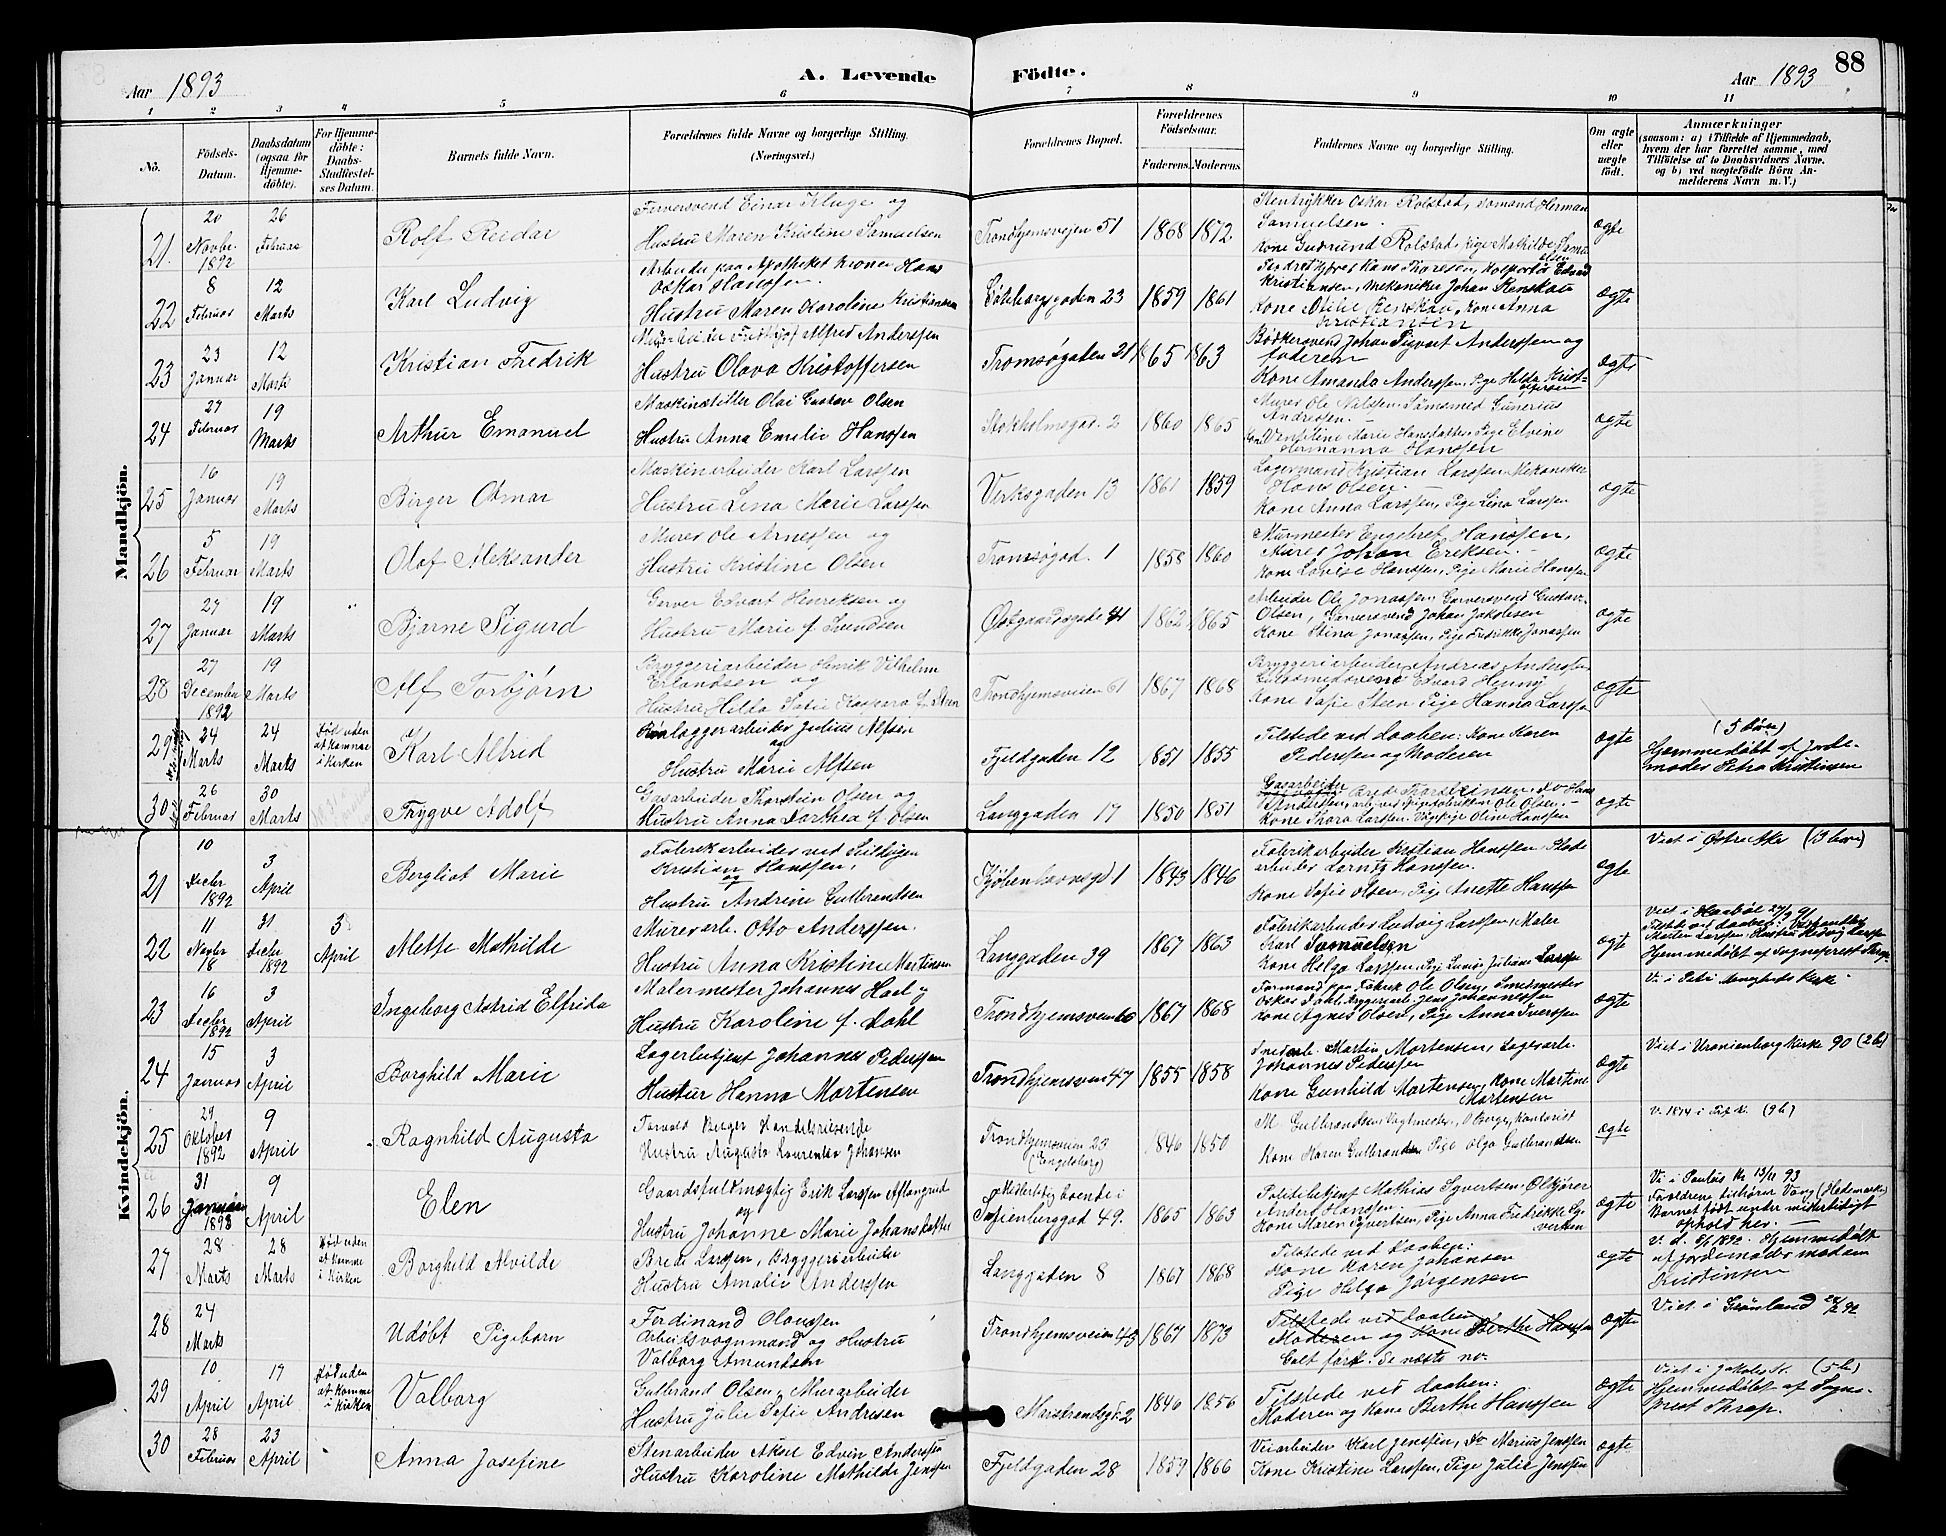 Aar 1893
A. Levende Födte.
Aar 1893
88
1 2 3 4 5 6 7 8 9 10 11
No.
Födsels-Datum.
Daabsdatum (ogsaa for Hjemme-döbte).
For Hjemme-döbte: Daabs-Stadfæstel-ses Datum.
Barnets fulde Navn.
Forældrenes fulde Navne og borgerlige Stilling. (Næringsvei.)
Forældrenes Bopæl.
Forældrenes Födselsaar.
Faderens. Moderens.
Faddernes Navne og borgerlige Stilling.
Om ægte eller uægte födt.
Anmærkninger
(saasom: a) i Tilfælde af Hjemmedaab, hvem der har forrettet samme, med Tilföielse af to Daabsvidners Navne, og b) ved uægtefödte Börn An-melderens Navn m. V.)
Mandkjön.
21. 20 Novbr. 1892 26 Februar Rolf Reidar
Farversvend Einar Kluge og
Hustru Maren Kristine Samuelsen
Trondhjemsveien 51 1868 1872
Stentrykker Oskar Rolstad, Sömand Herman
Samuelsen.
Kone Gudrund Rolstad, Pige Mathilde
ægte
22 8 Februar 12 Marts Karl Ludvig
Arbeider paa Apotheket Kronen Hans
Oskar Hanssen.
Hustru Maren Karoline Kristiansen
Göteborggaden 23 1859 1861
Hans Thoresen, Kolportör Edvard
Kristiansen, Mekaniker Johan Renskau
Kone Otilie Renskau, Kone Anna
Kristiansen
ægte
23 23 Januar 12 Marts Kristian Fredrik
Fridtjof Alfred Anderssen
Hustru Olava Kristoffersen
Tromsögaden 21 1865 1863
Bödkersvend Johan Sigvart Anderssen og
faderen
Kone Amanda Anderssen, Pige Hilda Krist-
offersen
ægte
24 27 Februar 19 Marts Arthur Emanuel
Maskinstiller Olai Gustav Olsen
Hustru Anna Emilie Hanssen
Stokholmsgad. 2 1860 1865
Murer Ole Nilssen. Sömsmed Gunerius
Andressen.
Marie Hansdatter, Pige Elvine
Hermanna Hanssen
ægte
25 16 Januar 19 Marts Birger Otmar
Maskinarbeider Karl Larssen
Hustru Lina Marie Larssen
Verksgaden 13 1861 1859
Lagermand Kristian Larssen, Mekaniker
Hans Olsen.
Kone Anna Larssen, Pige Lina Larssen
ægte
26 5 Februar 19 Marts Olaf Aleksander
Murer Ole Arnessen og
Hustru Kristine Olsen
Tromsögad. 1 1858 1860
Murmester Engebret Hanssen,
Murer Johan Eriksen.
Kone Lovise Hanssen, Pige Marie Hanssen
ægte
27 27 Januar 19 Marts Bjarne Sigurd
Garver Edvart Henriksen og
Hustru Marie f. Svendsen
Östgaardsgade 41 1862 1865
Arbeider Ole Jonassen, Garversvend Gustav
Olsen, Garversvend Johan Jakobsen
Kone Stina Jonassen, Pige Fredrikke Jonassen
ægte
28 27 December 1892 19 Marts Alf Torbjørn
Bryggeriarbeider Henrik Vilhelm
Erlandsen og
Hustru Hilda Sofie f. Steen
Trondhjemsveien 61 1867 1868
Bryggeriarbeider Andreas Anderssen
Guldsmedsvend Edvard Henny
Kone Sofie Steen Pige Hanna Larssen
ægte
29 24 Marts 24 Marts Död uden at komme i Kirken Karl Alfrid
Rörlæggerarbeider Julius Alfsen
og
Hustru Marie Alfsen
Fjeldgaden 12 1851 1855
Tilstede ved daaben: Kone Karen
Pederssen og Moderen
ægte
(5 börn)
Hjemmedöbt af Jorde-
moder Petra Kristinsen
30 26 Februar 30 Marts Trygve Adolf
Gasarbeider Thorstein Olsen og
Hustru Anna Dorthea f. Olsen
Langgaden 17 1850 1851
Gasarbeider
Anderssen, arb. ved Ole Olsen.
Kone Thora Larssen. Pige Oline Hanssen
ægte
Kvindekjön.
21 10 Decbr 1892 3 April Bergliot Marie
Fabrikarbeider ved
Kristian Hanssen,
og
Hustru Andrine Gulbrandsen
Kjöbenhavnsgd 1 1843 1846
Fabrikarbeider Kristian Hanssen,
arbeider Hanssen.
Kone Sofie Olsen, Pige Anette Hanssen
ægte
Viet i Østre Aker (13 børn)
22 11 Novbr 18 31 Decbr 1892 3 April Alette Mathilde
Murerarb. Otto Anderssen.
Hustru Anna Kristine Martinsen
Langgaden 39 1867 1863
Fabrikarbeider Ludvig Larssen, Maler
Karl Samuelsen
Kone Helga Larssen, Pige Juliane Larssen
ægte
Viet i Haaböl 27/9 91
Tilstede ved daaben:
Martin Larssen, Hustru Hedvig Larssen
Hjemmedöbt af Sogneprest Thrap
23 16 Decbr 1892 3 April Ingeborg Astrid Elfrida
Malermester Johannes Hoel og
Hustru Karoline f. Dahl
Trondhjemsveien 60 1867 1868
Formand paa Fabrik Ole Olsen, Smedmester
Oskar Dahl, Byggearb. Jens Johannessen
Kone Agnes Olsen, Pige Anna Iverssen
ægte
Vi i Petri Kirke
24 15 Januar 3 April Borghild Marie
Lagerbetjent Johannes Pederssen
Hustur Hanna Mortensen
Trondhjemsveien 47 1855 1858
Snedarb. Martin Mortensen, Lagerarb.
Johannes Pederssen
Kone Gunhild Mortensen, Kone Martine
Mortensen
ægte
Viet i Uranienborg Kirke 90 (2 b)
25 29 Oktober 1892 9 April Ragnhild Augusta
Torvald Berger Handelsreisende
Hustru Augusta Laurentze Johansen
Trondhjemsveien 23
(Engelsborg) 1846 1850
M Gulbrandsen, Vagtmester, O Berger, Kontorist
Kone Maren Gulbrandsen Pige Olga Gulbrandsen
ægte
V. 1874 i (9 b)
26 31 Januar 1893 9 April Elen
Gaardsfuldmægtig Erik Larssen Aflangrud
og
Hustru Johanne Marie Johansdatter
Midlertidig boende i
Sofienberggad 49. 1865 1863
Politibetjent Mathias Syvertsen, Ølkjører
Anders Hanssen
Kone Maren Syvertsen, Pige Anna Fredrikke Sy-
vertsen
ægte
Vi i Paulus K 93
Forældrene tilhører Vang (Hedemarken)
Barnet født under midlertidigt
ophold her.
27 28 Marts 28 Marts Död uden at komme i Kirken Borghild Alvilde
Brede Larssen, Bryggeriarbeider
Hustru Amalie Anderssen
Langgaden 8 1867 1868
Tilstede ved daaben:
Kone Karen Johansen
Pige Helga Jörgensen
ægte
1892. Hjemmedöbt
af Jordemoder madam
Kristinsen
28 24 Marts Udöbt Pigebarn
Ferdinand Olavssen
Arbeidsvognmand og Hustru
Valborg Amundsen
Trondhjemsveien 43 1867 1873
Tilstede ved daaben
Moderen og Kone Berthe Hanssen
Galt först. Se næste no.
ægte
Viet i Grönland 92
29 10 April 17 April Död uden at komme i Kirken Valborg
Gulbrand Olsen, Murarbeider
Hustru Julie Sofie Andresen
Marstrandsgd. 2 1846 1856
Tilstede ved daaben:
Moderen og Kone Berthe Hanssen
ægte
Viet i Jakobs K. (5 b)
Hjemmedöbt af Sogne-
prest Thrap.
30 28 Februar 23 April Anna Josefine
Stenarbeider Aksel Edvin Anderssen
Hustru Karoline Mathilde Jenssen
Fjeldgaden 28 1859 1866
Veiarbeider Karl Jenssen, Do Marius Jenssen
Kone Kristine Larssen, Pige Julie Jenssen
ægte